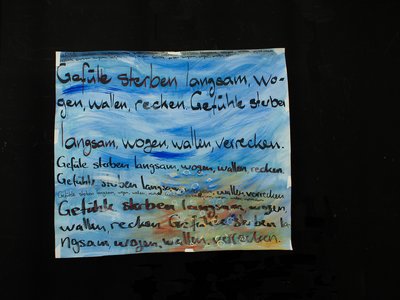 Gefühle sterben langsam, wo-
gen, wallen, recken. Gefühle sterben
langsam, wogen, wallen, verrecken.
Gefühle sterben langsam, wogen, wallen, recken.
Gefühle sterben langsam, wogen, wallen, verrecken
Gefühle sterben langsam, wogen,
wallen, recken. Gefühle sterben la-
ngsam, wogen, wallen, verrecken.